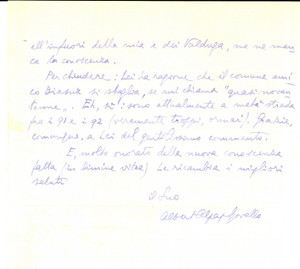 all'infuori della mia e dei Valduga, me ne man-
ca la conoscenza.
Per chiudere: Lei ha ragione che il comune ami-
co Biasia si sbaglia, se mi chiama "quasi novan-
tenne". Eh, sì: sono attualmente a metà strada
fra i 90 e i 92 (veramente troppi, ormai). Grazie,
comunque, a Lei del gentilissimo
E, molto onorato della nuova conoscenza
fatta (in limine vitae) Le ricambio i migliori
saluti
il Suo